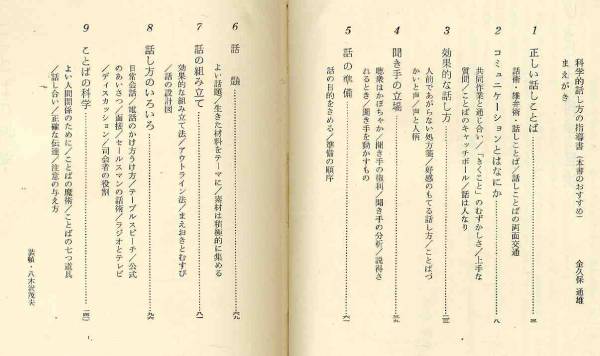 科学的話し方の指導書（本書のおすすめ） 金久保 通雄
まえがき
1 正しい話しことば
話術・雄弁術・話しことば／話しことばの両面交通
2 コミュニケーションとはなにか 八
共同作業と通じ合い／「きくこと」のむずかしさ／上手な
質問／ことばのキャッチボール／話は人なり
3 効果的な話し方
人前であがらない処方箋／好感のもてる話し方／ことばづ
かいと声／声と人柄
4 聞き手の立場
聴衆はかぼちゃか／聞き手の権利／聞き手の分析／説得さ
れるとき／聞き手を動かすもの
5 話の準備 六一
話の目的をきめる／準備の順序
6 話題 六九
よい話題／生きた材料をテーマに／素材は積極的に集める
7 話の組み立て 八一
効果的な組み立て法／アウトライン法／まえおきとむすび
／話の設計図
8 話し方のいろいろ 九六
日常会話／電話のかけ方うけ方／テーブルスピーチ／公式
のあいさつ／面接／セールスマンの話術／ラジオとテレビ
／ディスカッション／司会者の役割
9 ことばの科学
よい人間関係のために／ことばの魔術／ことばの七つ道具
／話し合い／正確な伝達／注意の与え方
装幀・八木沢茂夫